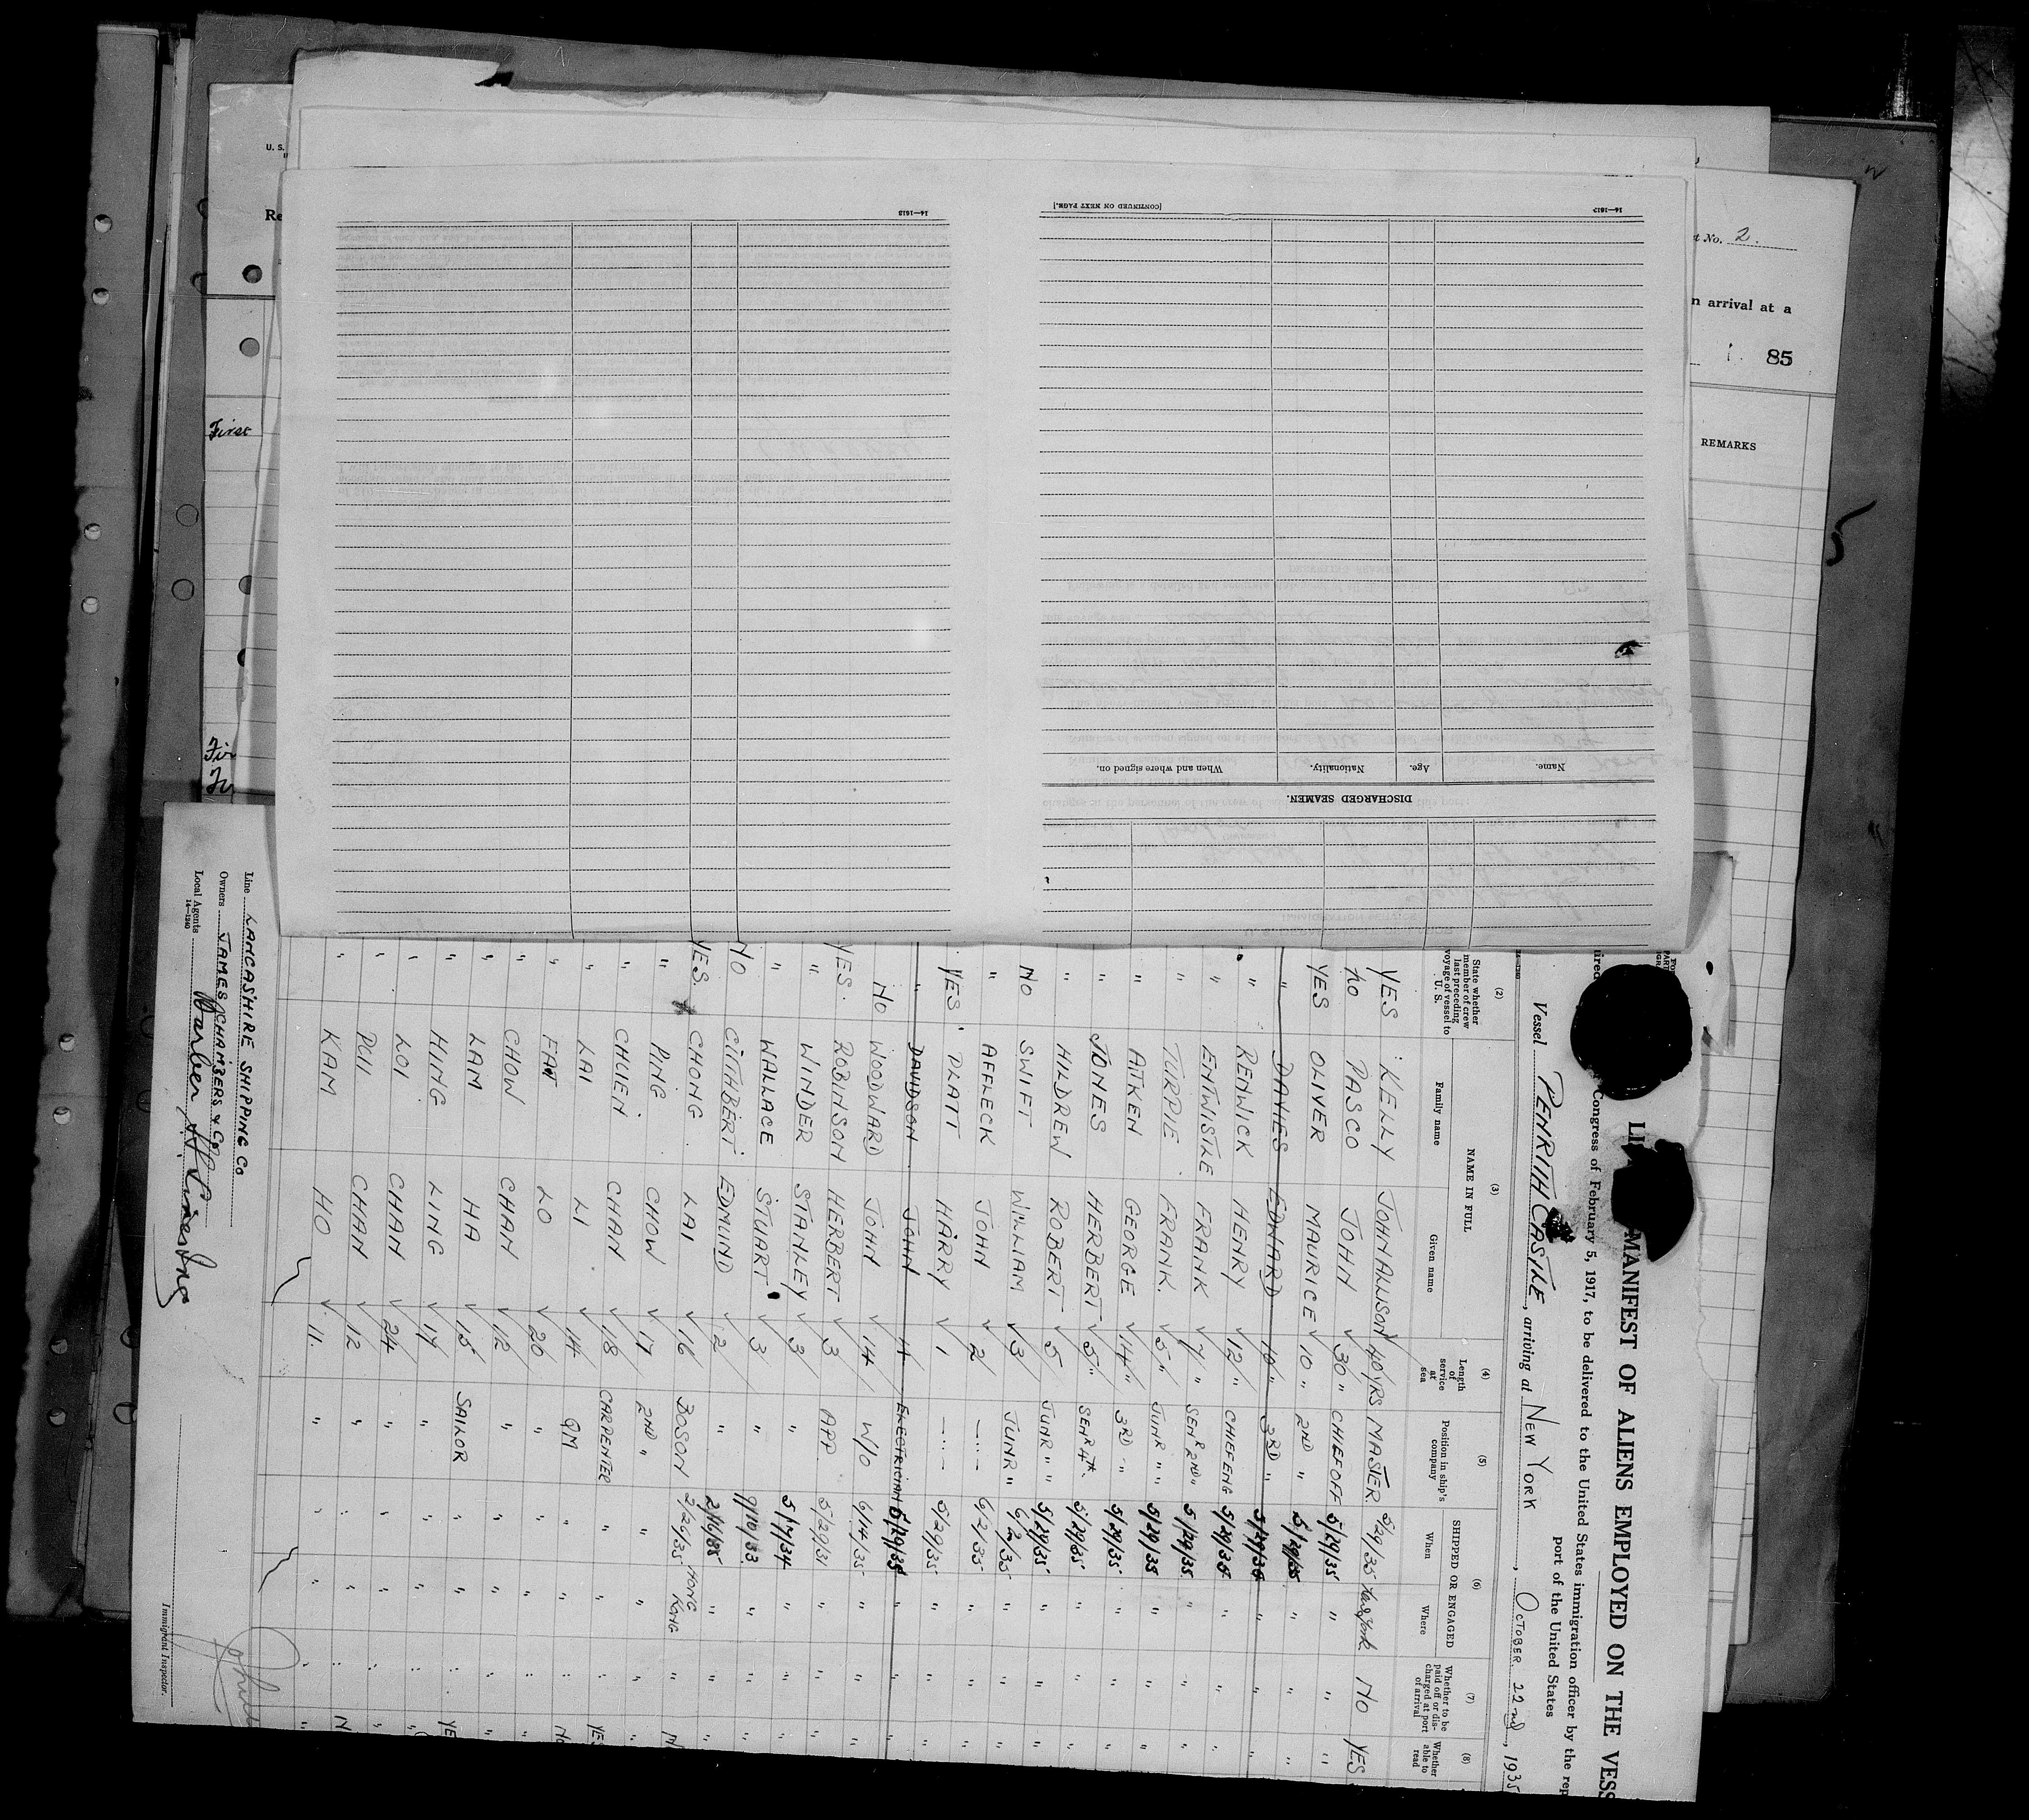 U. S.
Re
First
Fir
t No. 2.
n arrival at a
85
REMARKS
14—1613
[CONTINUED ON NEXT PAGE.]
14—1613
DISCHARGED SEAMEN.
Name. Age. Nationality. When and where signed on.
MANIFEST OF ALIENS EMPLOYED ON THE VESS
Congress of February 5, 1917, to be delivered to the United States immigration officer by the rep
port of the United States
Vessel PENRITH CASTLE, arriving at NEW YORK, OCTOBER 22nd, 1935
(2) (3) (4) (5) (6) (7) (8)
State whether member of crew last preceding voyage of vessel to U. S.
NAME IN FULL
Family name Given name
Length of service at sea
Position in ship's company
SHIPPED OR ENGAGED
When Where
Whether to be paid off or discharged at port of arrival
Whether able to read
YES KELLY JOHN ALLISON 40 YRS MASTER 5/29/35 New York NO YES
NO PASCO JOHN 30 " CHIEF OFF 5/29/35 " " "
YES OLIVER MAURICE 10 " 2ND " 5/29/35 " " "
" DAVIES EDWARD 10 " 3RD " 5/29/35 " " "
" RENWICK HENRY 12 " CHIEF ENG 5/29/35 " " "
" ENTWISTLE FRANK 7 " SENR 2ND " 5/29/35 " " "
" TURPIE FRANK. 5 " JUNR " " 5/29/35 " " "
" AITKEN GEORGE 14 " 3RD " 5/29/35 " " "
" JONES HERBERT 5 " SENR 4th. 5/29/35 " " "
" HILDREW ROBERT 5 JUNR " " 5/29/35 " " "
NO SWIFT WILLIAM 3 JUNR " 6/2/35 " " "
" AFFLECK JOHN 2 6/2/35 " " "
YES PLATT HARRY 1 5/29/35 " " "
" DAVIDSON JOHN 4 ELECTRICIAN 5/29/35 " " "
NO WOODWARD JOHN 14 W/O 6/14/35 " " "
YES. ROBINSON HERBERT 3 APP. 5/29/31 " " "
" WINDER STANLEY 3 " 5/17/34 " " "
" WALLACE STUART 3 " 9/10/33 " " "
NO CUTHBERT EDMUND 2 " 2/16/35 " " "
YES. CHONG LAI 16 BOSON 2/26/35 HONG KONG " N
" PING CHOW 17 2ND " " " " "
" CHUEN CHAN 18 CARPENTER " " " YES
" LAI LI 14 QM " " " NO
" FAT LO 20 " " " " "
" CHOW CHAN 12 " " " " "
" LAM HA 15 SAILOR " " " YE
" HING LING 17 " " " " "
" LOI CHAN 24 " " " " "
" PUI CHAN 12 " " " " N
" KAM HO 11. " " " " "
Line LANCASHIRE SHIPPING Co
Owners JAMES CHAMBERS & Co
Local Agents Barber
14—1240
Immigrant Inspector.